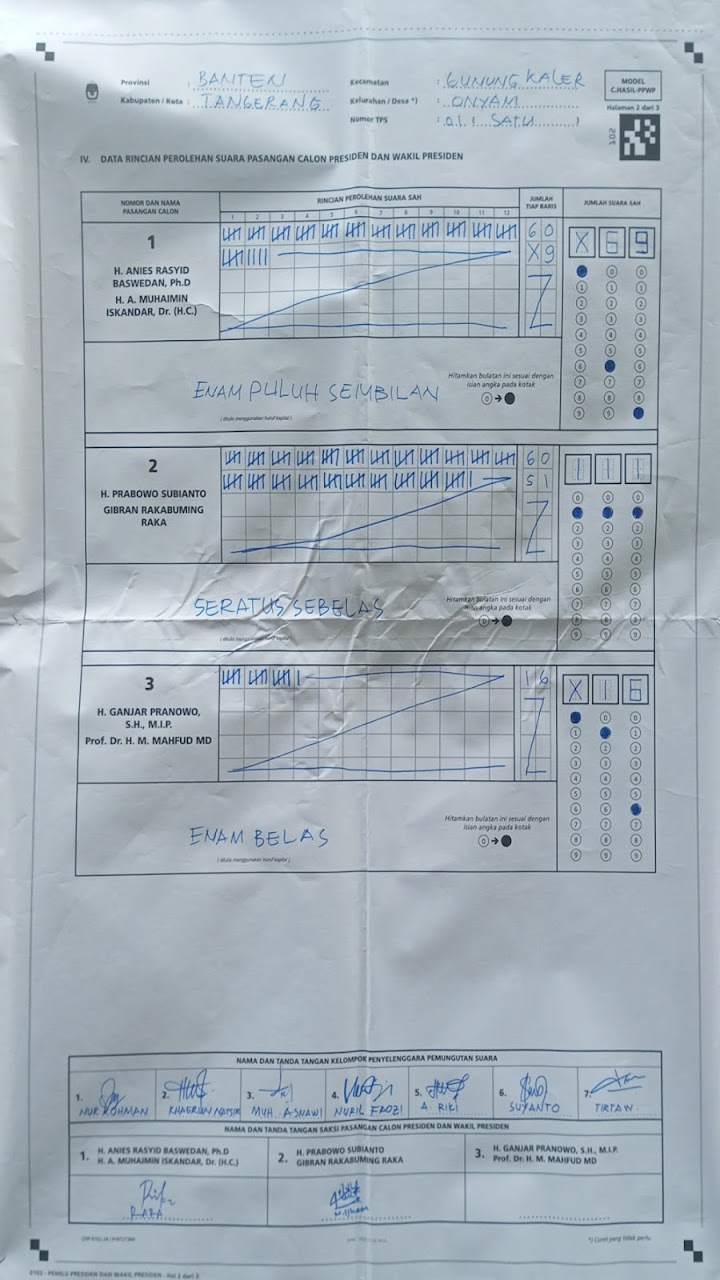 Provinsi : BANTEN
Kabupaten / Kota : TANGERANG
Kecamatan : GUNUNG KALER
Kelurahan / Desa *) : ONYAM
Nomor TPS : 011 SATU
MODEL
C.HASIL-PPWP
Halaman 2 dari 3
IV. DATA RINCIAN PEROLEHAN SUARA PASANGAN CALON PRESIDEN DAN WAKIL PRESIDEN
NOMOR DAN NAMA
PASANGAN CALON
RINCIAN PEROLEHAN SUARA SAH
1 2 3 4 5 6 7 8 9 10 11 12
JUMLAH
TIAP BARIS
JUMLAH SUARA SAH
1
H. ANIES RASYID
BASWEDAN, Ph.D
H. A. MUHAIMIN
ISKANDAR, Dr. (H.C.)
60
X9
X69
ENAM PULUH SEMBILAN
( ditulis menggunakan huruf kapital )
Hitamkan bulatan ini sesuai dengan
isian angka pada kotak
2
H. PRABOWO SUBIANTO
GIBRAN RAKABUMING
RAKA
60
51
111
SERATUS SEBELAS
( ditulis menggunakan huruf kapital )
Hitamkan bulatan ini sesuai dengan
isian angka pada kotak
3
H. GANJAR PRANOWO,
S.H., M.I.P.
Prof. Dr. H. M. MAHFUD MD
16
X16
ENAM BELAS
( ditulis menggunakan huruf kapital )
Hitamkan bulatan ini sesuai dengan
isian angka pada kotak
NAMA DAN TANDA TANGAN KELOMPOK PENYELENGGARA PEMUNGUTAN SUARA
1. NUR ROHMAN
2. KHAERUN NATSIR
3. MUH ASNAWI
4. NURIL FAOZI
5. A. RIKI
6. SUYANTO
7. TIRTAW
NAMA DAN TANDA TANGAN SAKSI PASANGAN CALON PRESIDEN DAN WAKIL PRESIDEN
1. H. ANIES RASYID BASWEDAN, Ph.D
H. A. MUHAIMIN ISKANDAR, Dr. (H.C.)
2. H. PRABOWO SUBIANTO
GIBRAN RAKABUMING RAKA
3. H. GANJAR PRANOWO, S.H., M.I.P.
Prof. Dr. H. M. MAHFUD MD
RARA
*) Coret yang tidak perlu
0102 - PEMILU PRESIDEN DAN WAKIL PRESIDEN - Hal 2 dari 3